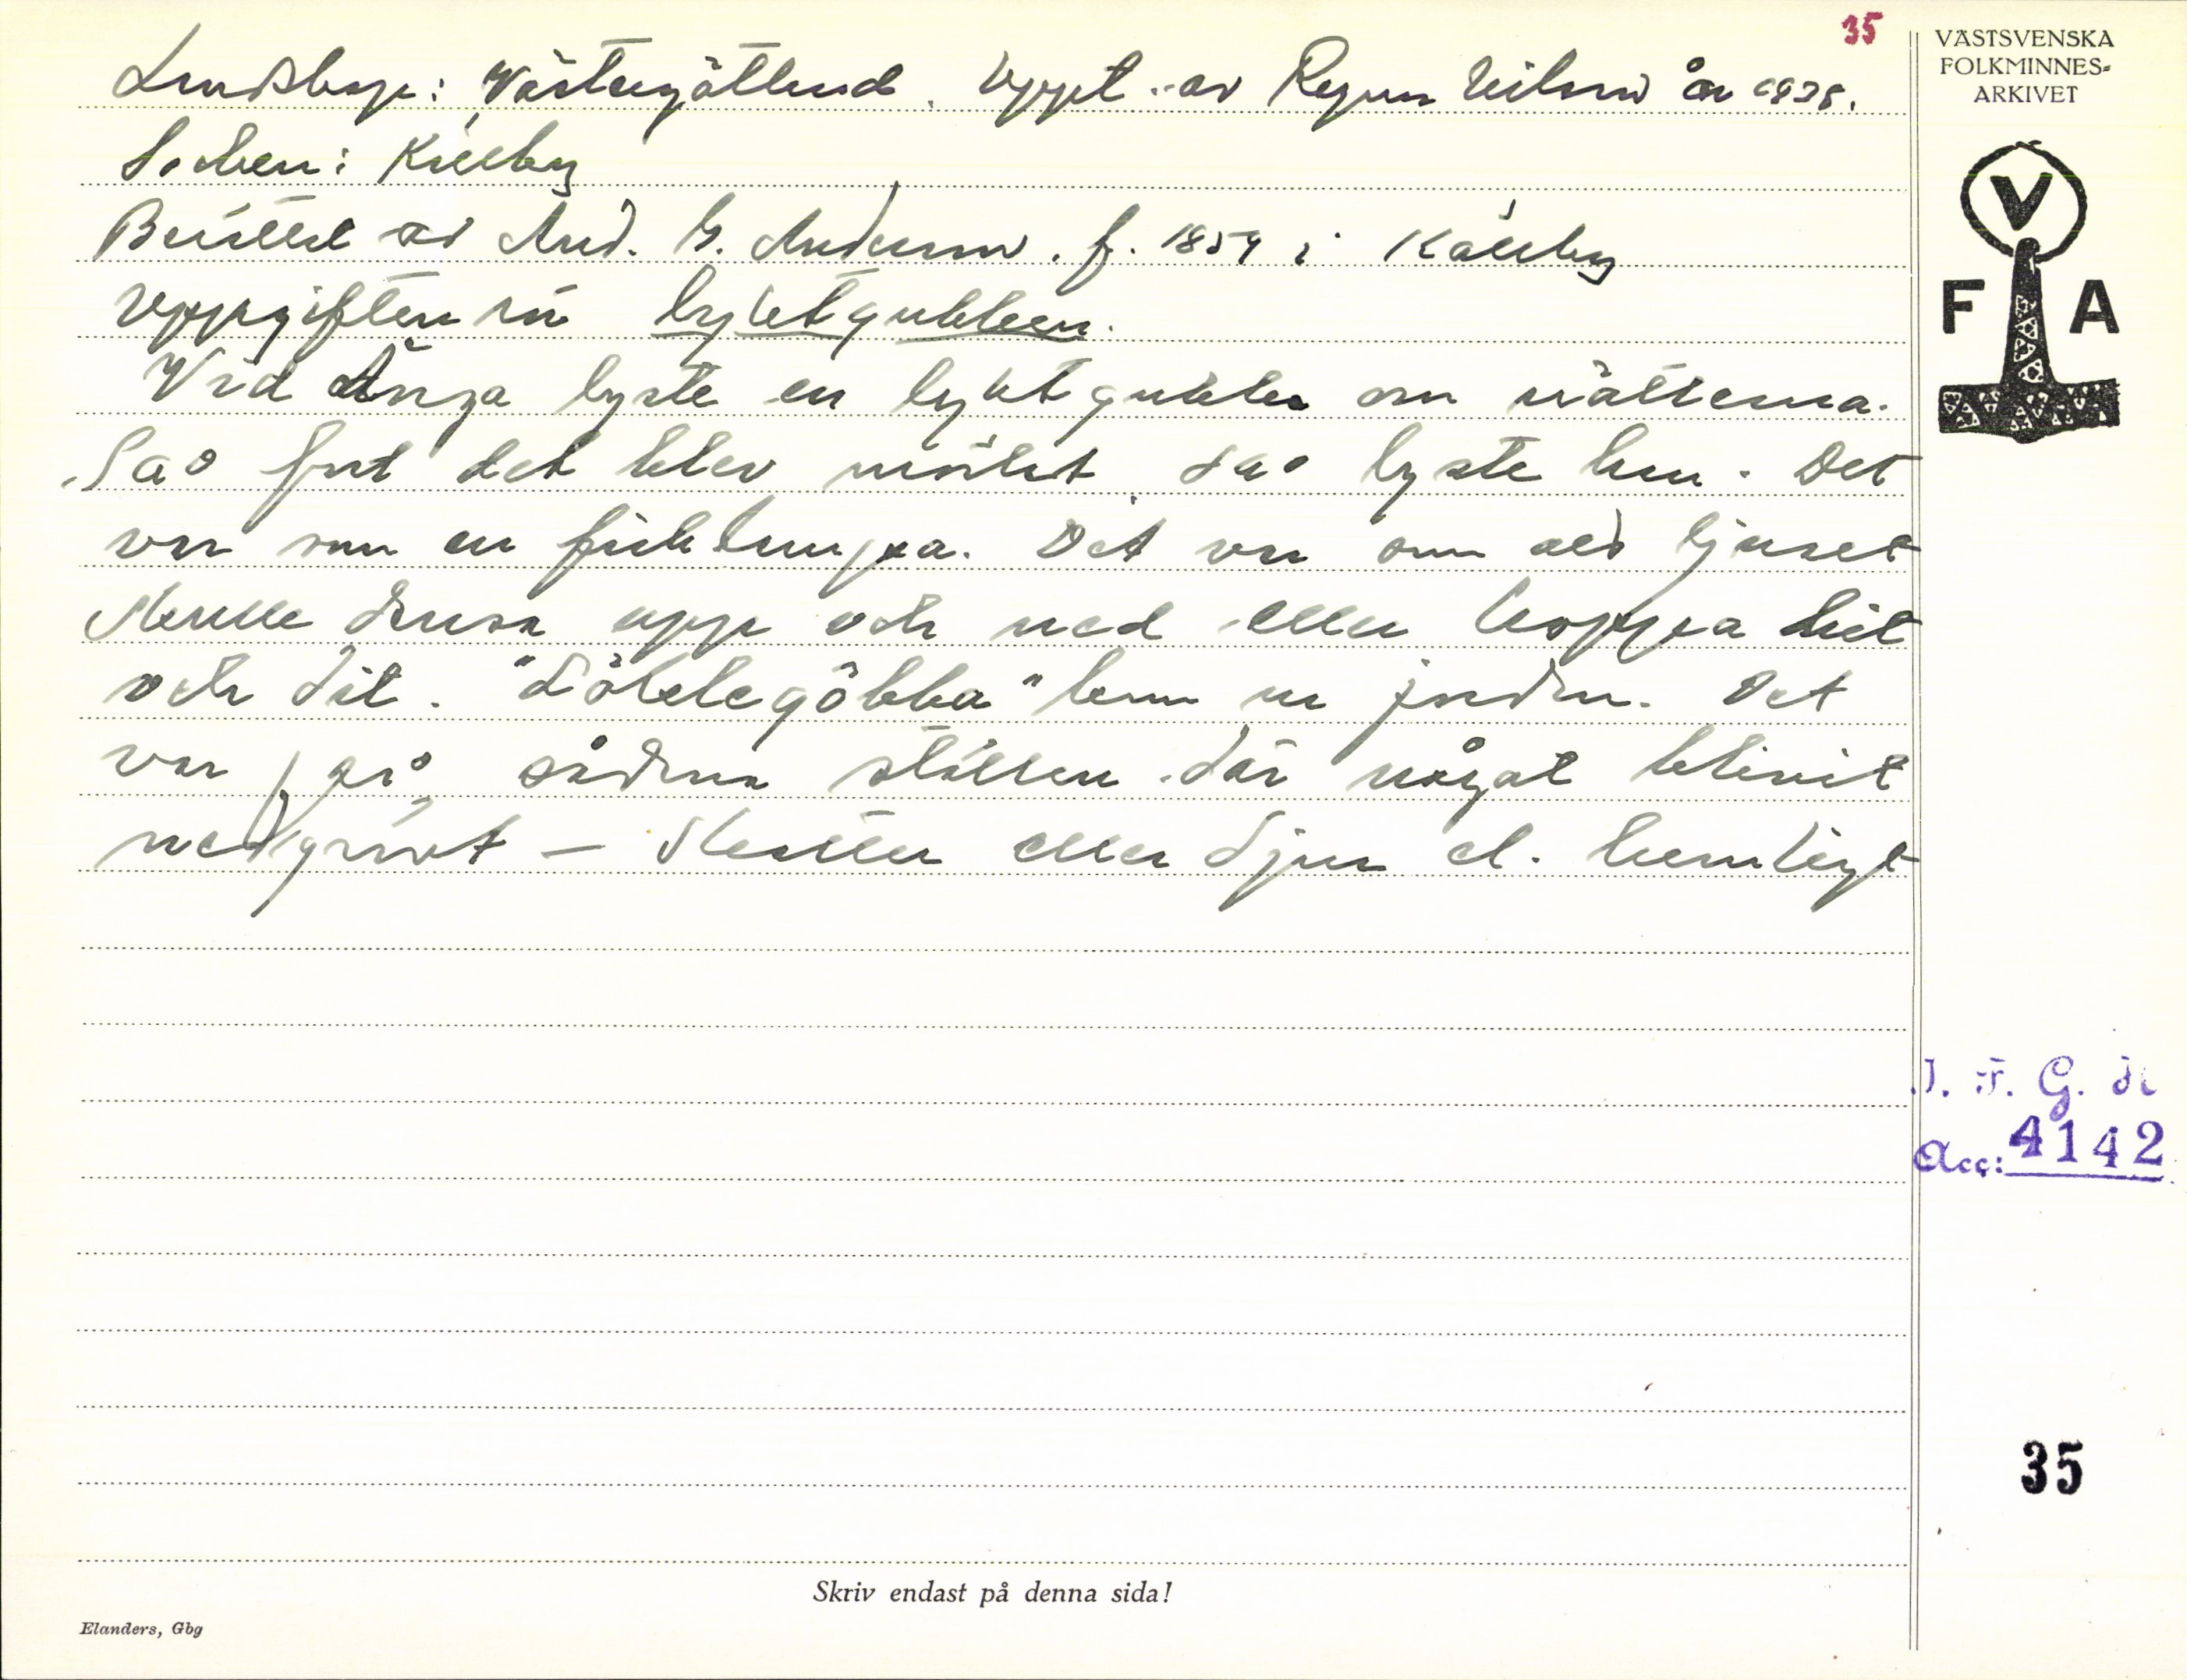 35
Landskap: Västergötland. Uppt. av Ragnar Nilsson år 1938.
Socken: Källby
Berättat av And. G. Andersson. f. 1854 i Källby
Uppgiften rör lyktgubben.
Vid Änga lyste en lyktgubbe om nätterna.
Så fort det blev mörkt, så lyste han. Det
var som en ficklampa. Det var som om ljuset
skulle dansa upp och ned eller hoppa hit
och dit. "Löktegöbba" kom ur jorden. Det
var på sådana ställen där något blivit
nedgrävt — skatter eller djur el. hemligt
VÄSTSVENSKA
FOLKMINNES-
ARKIVET
V
F A
I. F. G. H.
Acc: 4142
35
Skriv endast på denna sida!
Elanders, Gbg